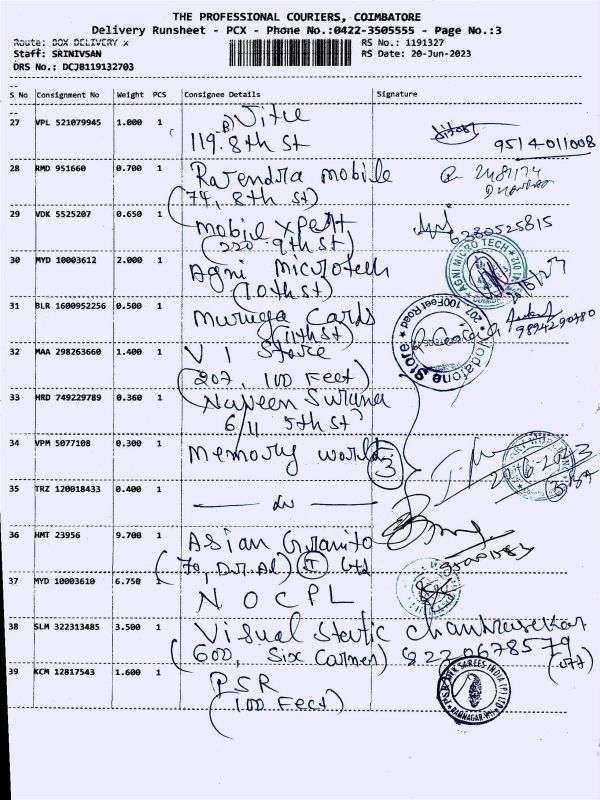 THE PROFESSIONAL COURIERS, COIMBATORE
Delivery Runsheet - PCX - Phone No.:0422-3505555 - Page No.:3
Route: BOX DELIVERY x
Staff: SRINIVSAN
DRS No.: DCJB119132703
RS No.: 1191327
RS Date: 20-Jun-2023
S No Consignment No Weight PCS Consignee Details Signature
27 VPL 521079945 1.000 1
119. 8th St
9514011008
28 RMD 951660 0.700 1 Rajendra mobile
(74, 8th st)
29 VDK 5525207 0.650 1 mobile xpert
(220 9th St)
6380525815
30 MYD 10003612 2.000 1 Agni microtech
(10th st)
AGNI MICRO TECH
31 BLR 1600952256 0.500 1 Muruga Cards
(11th st)
9894290780
32 MAA 298263660 1.400 1 V I Store
(207, 100 Feet)
207 100Feet Road Vodafone Store
33 HRD 749229789 0.360 1 Naveen Surana
6/11 5th st
34 VPM 5077108 0.300 1 memory world
3
35 TRZ 120018433 0.400 1 do
36 HMT 23956 9.700 1 Asian Granito
(70, D.B.Rd) (I) Ltd
37 MYD 10003610 6.750 1 NOCPL
38 SLM 322313485 3.500 1 Visual Static Chandrasekar
(600, Six Corner) 8220678579
(off)
39 KCM 12817543 1.600 1 PSR
(100 Feet)
SAREES INDIA (P) LTD
RAMNAGAR